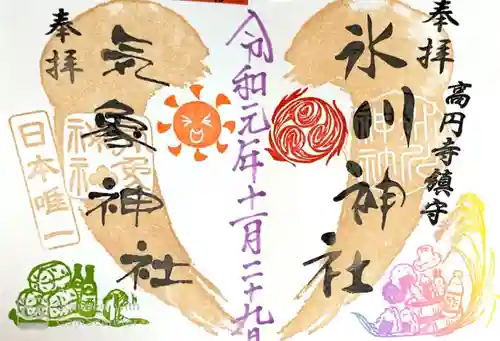 奉拝
氷川神社
高円寺鎮守
令和元年十一月二十九日
奉拝
気象神社
日本唯一